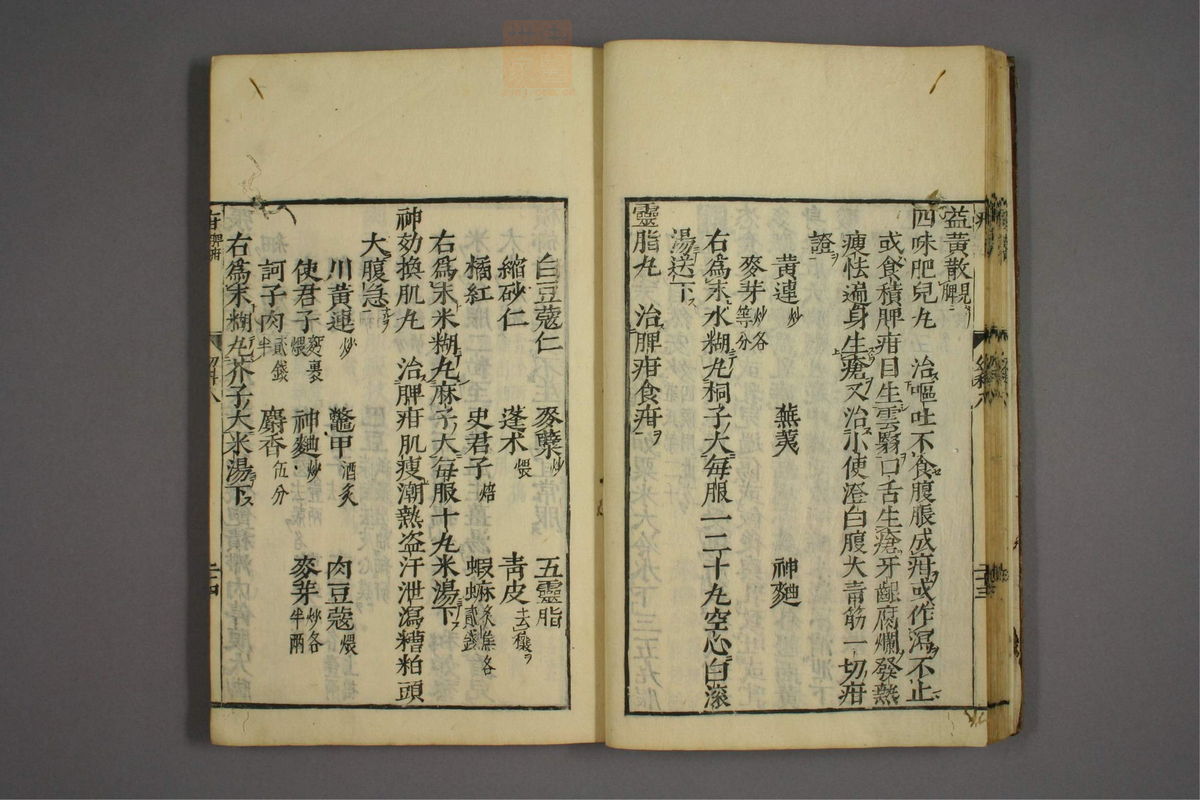 益黃散見脾
四味肥兒丸 治嘔吐不食腹脹成疳或作瀉不止
或食積脾疳目生雲翳口舌生瘡牙齦腐爛發熱
瘦怯遍身生瘡又治小便澄白腹大青筋一切疳
證
黃連炒 蕪荑 神麯
麥芽炒各等分
右爲末水糊丸桐子大每服一二十丸空心白滾
湯送下
靈脂丸 治脾疳食疳
白豆蔻仁 麥櫱炒 五靈脂
縮砂仁 蓬朮煨 青皮去穰
橘紅 史君子焙 蝦蟆炙焦各貳錢
右爲末米糊丸麻子大每服十丸米湯下
神効換肌丸 治脾疳肌瘦潮熱盗汗泄瀉糟粕頭
大腹急
川黃連炒 鼈甲酒炙 肉豆蔻煨
使君子麪裹煨 神麯炒 麥芽炒各半兩
訶子肉貳錢半 麝香伍分
右爲末糊丸芥子大米湯下
二十四